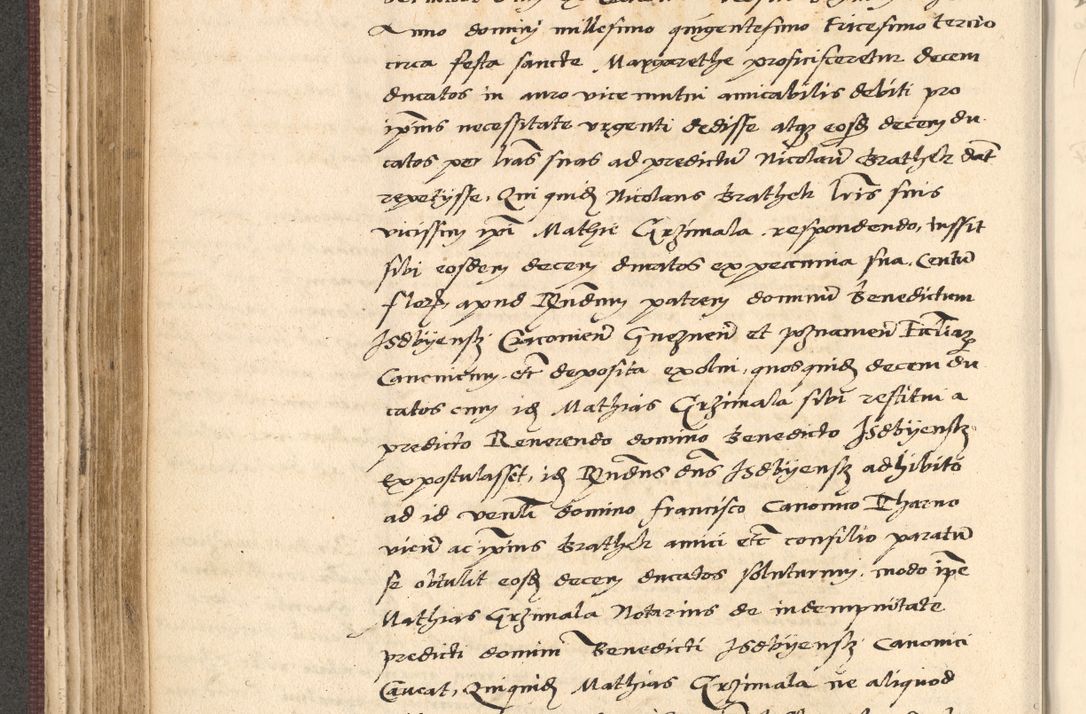 Anno dominj millesimo quingentesimo tricesimo tercio
circa festa sancte Margarethe proficisceretur decem
ducatos in auro vice mutui amicabilis debiti pro
ip̄ius necessitate vrgenti dedisse atq̄ȝ eosd̄ decem du
catos per l̄ras suas ad predictū Nicolaū Brathek dat̄
repetijsse, Qui quid̄ Nicolaus Brathek l̄ris suis
vicissim ip̄i Mathie Grzimala respondendo, iussit
sibi eosdem decem ducatos ex peccunia sua, Centū
flor̄, apud R̄ndum patrem dominū Benedictum
Isdbyensk̄ Cracovien̄ Gneznen̄ et poznanien̄ Eccl̄iar̄
Canonicum et̄c deposita exolui, quosquid̄ decem du
catos cum id̄ Mathias Grzimala sibi restitui a
predicto Reuerendo domino Benedicto Isdbyensk̄
Expostulasset, id̄ R̄ndus dn̄s Isdbyensk̄ adhibito
ad id venl̄i domino francisco Canonico Tharno
vicen̄ ac ip̄ius Brathek amici et̄c consilio paratū
se obtulit eosd̄ decem ducatos soluturum, modo ip̄e
Mathias Grzimala Notarius de indempnitate
predicti domini Benedicti Isdbyensk̄ Canonici
Caueat, Quiquid̄ Mathias Grzimala ne aliquod